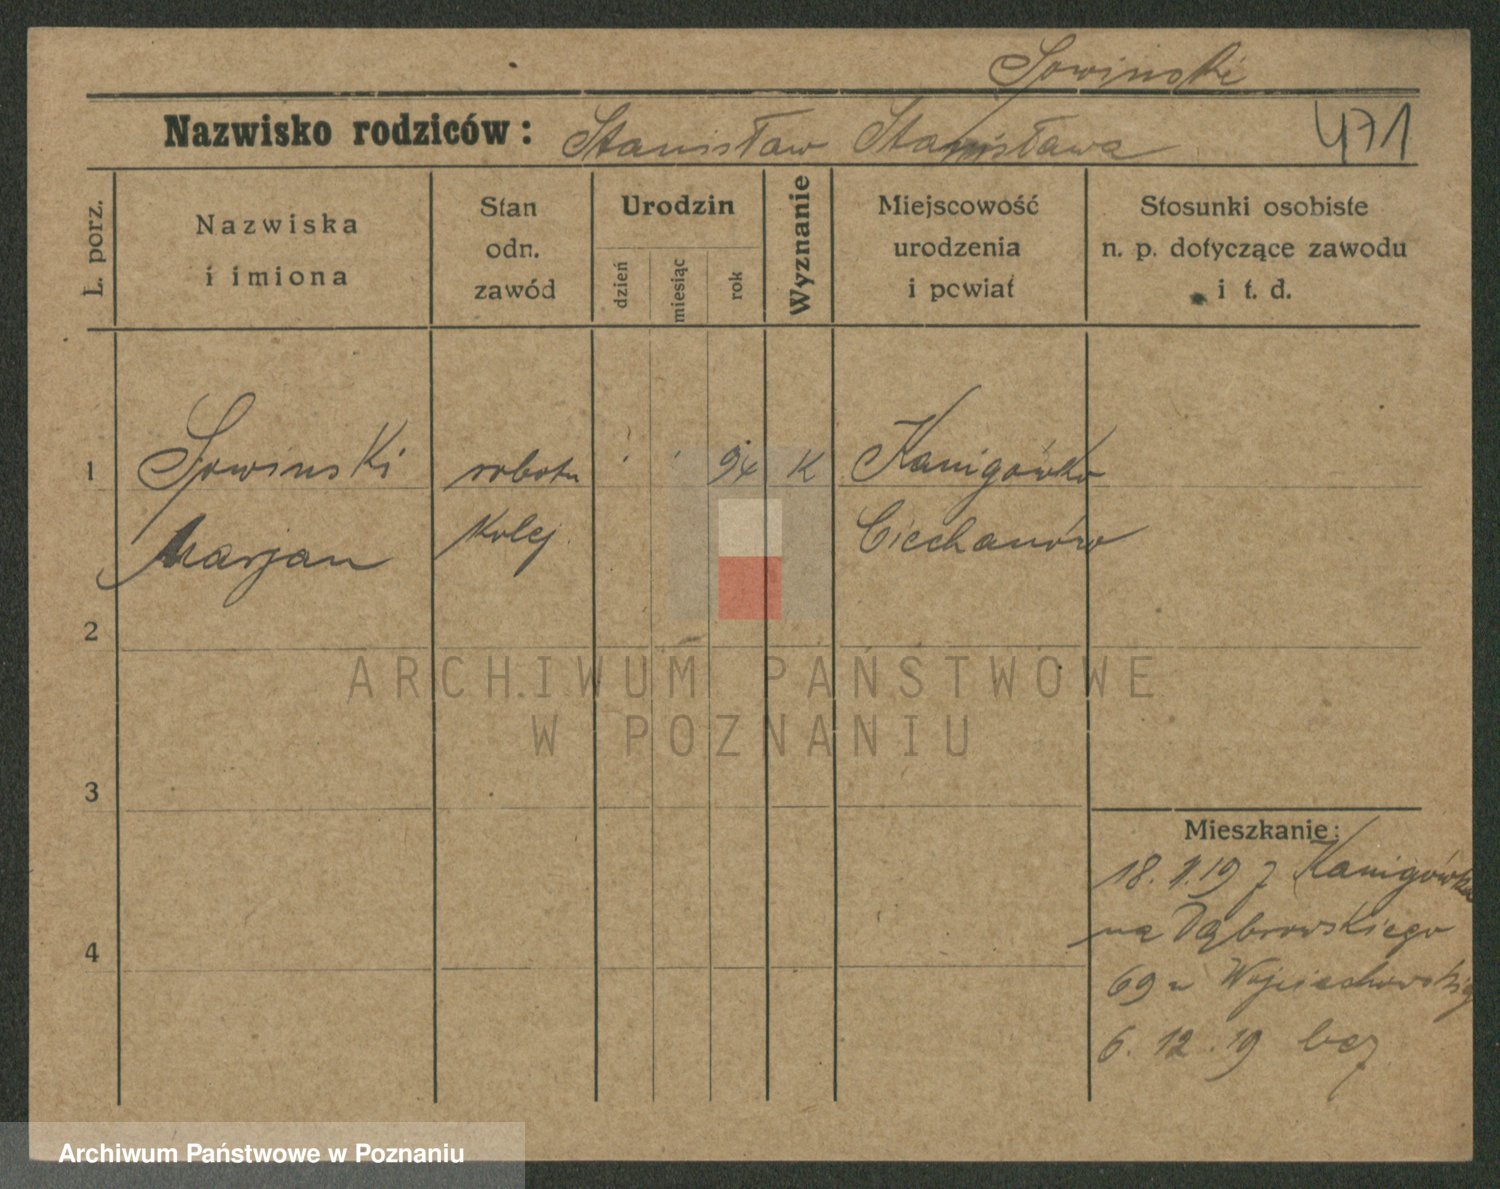 Sowinski
Nazwisko rodziców: Stanisław Stanisława 471
L. porz.
Nazwiska
i imiona
Stan
odn.
zawód
Urodzin
dzień
miesiąc
rok
Wyznanie
Miejscowość
urodzenia
i powiat
Stosunki osobiste
n. p. dotyczące zawodu
i t. d.
1 Sowinski robotn 94 K Kanigówko
Marjan kolej. Ciechanów
2
ARCHIWUM PAŃSTWOWE
W POZNANIU
3
Mieszkanie:
18. 19 z Kanigówka
na Dąbrowskiego
4
69 u Wojciechowskieg
6. 12. 19
Archiwum Państwowe w Poznaniu